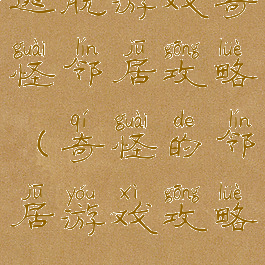 逃脱游戏奇
guài lín jū gōng lüè
怪邻居攻略
qí guài de lín
(奇怪的邻
jū yóu xì gōng lüè
居游戏攻略